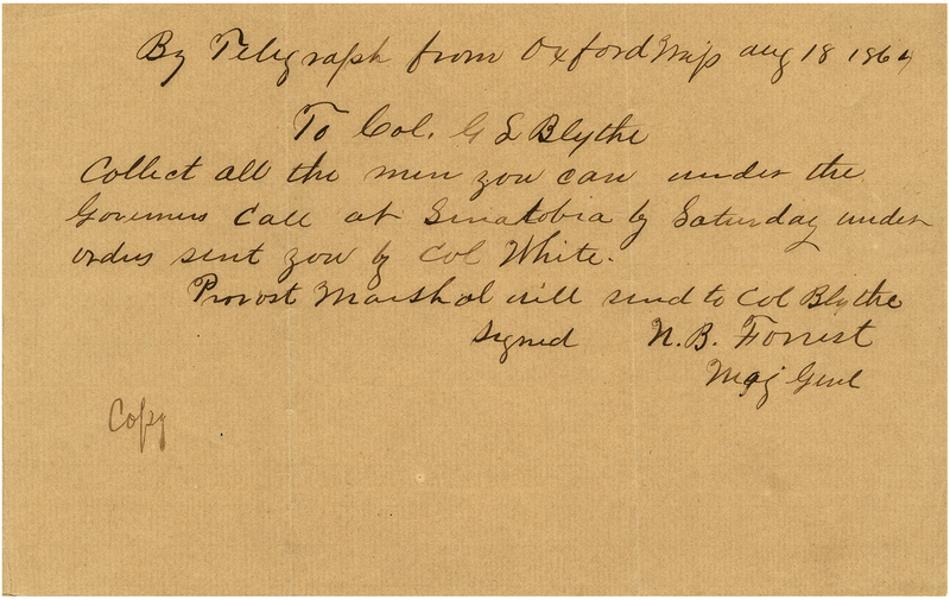 By Telegraph from Oxford Miss Aug 18 1864
To Col. G L Blythe
Collect all the men you can under the
Governers Call at Senatobia by Saturday under
orders sent you by Col White.
Provost Marshal will send to Col Blythe
Signed N. B. Forrest
Maj Genl
Copy